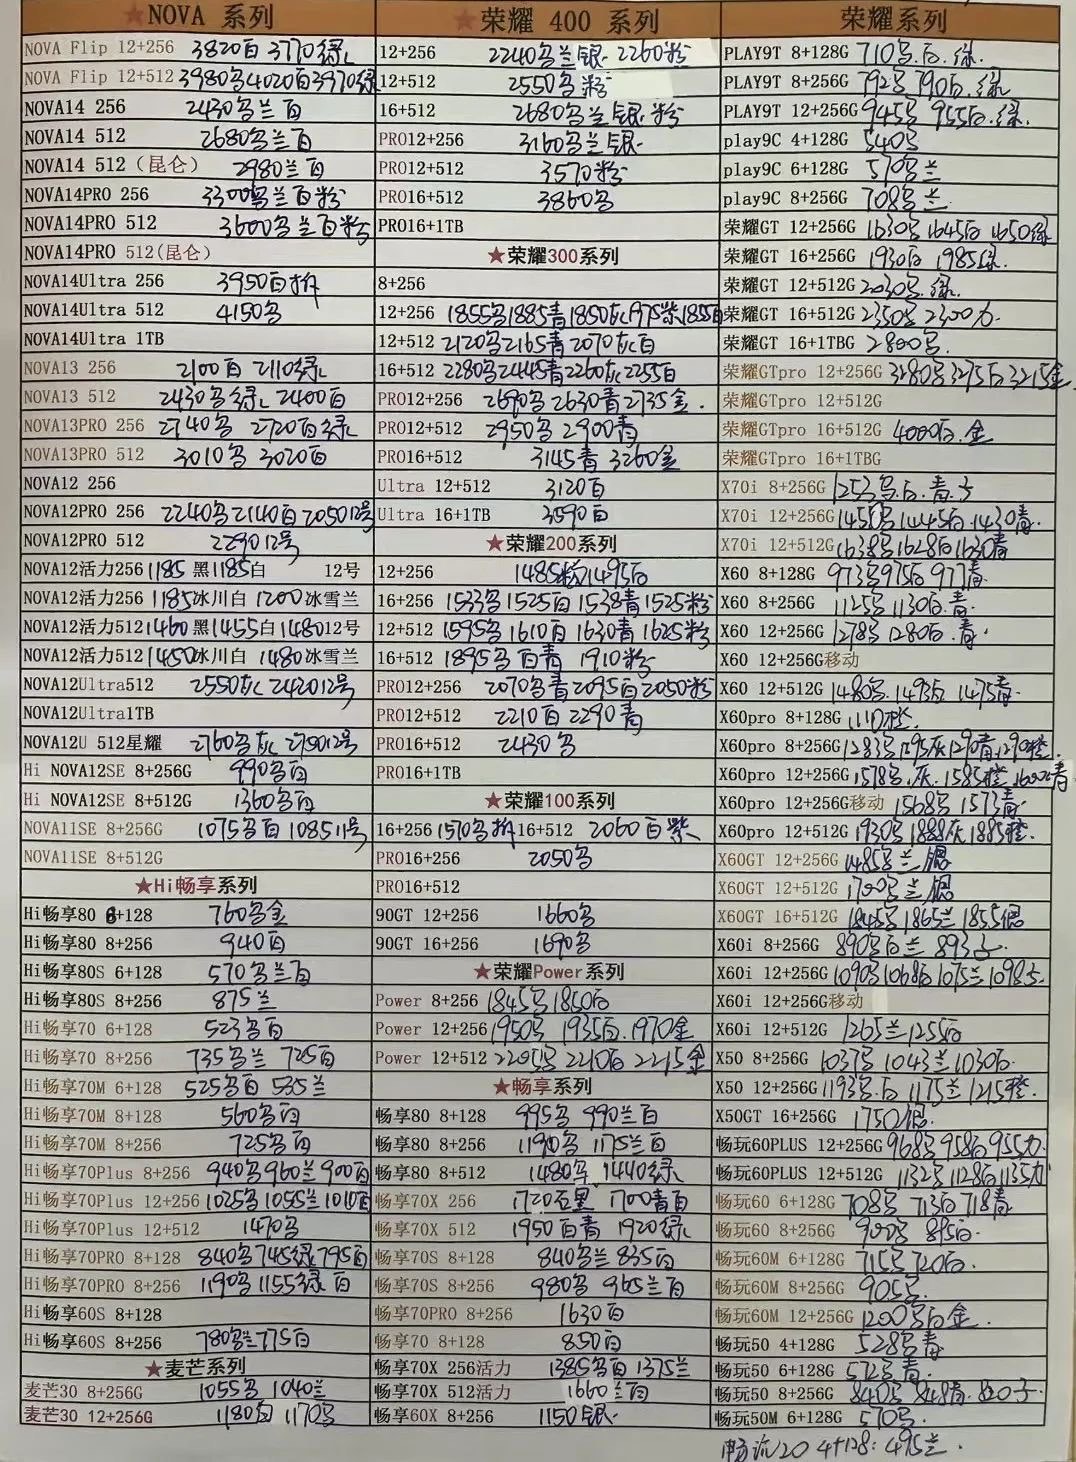 ★NOVA 系列
NOVA Flip 12+256 3820白 3770绿
NOVA Flip 12+512 3980多4020白3970绿
NOVA14 256 2430多兰白
NOVA14 512 2680多兰白
NOVA14 512（昆仑） 2980兰白
NOVA14PRO 256 3300多兰白粉
NOVA14PRO 512 3600多兰白粉
NOVA14PRO 512(昆仑)
NOVA14Ultra 256 3950白
NOVA14Ultra 512 4150多
NOVA14Ultra 1TB
NOVA13 256 2100白 2110绿
NOVA13 512 2430多绿 2400白
NOVA13PRO 256 2740多 2720白绿
NOVA13PRO 512 3010多 3020白
NOVA12 256
NOVA12PRO 256 2240多2140白205012号
NOVA12PRO 512 229012号
NOVA12活力256 1185 黑1185白 12号
NOVA12活力256 1185冰川白 1200冰雪兰
NOVA12活力512 1460黑1455白148012号
NOVA12活力512 1450冰川白 1480冰雪兰
NOVA12Ultra512 2550灰 242012号
NOVA12Ultra1TB
NOVA12U 512星耀 2760多灰 275012号
Hi NOVA12SE 8+256G 990多白
Hi NOVA12SE 8+512G 1360多白
NOVA11SE 8+256G 1075多白 108511号
NOVA11SE 8+512G
★Hi畅享系列
Hi畅享80 8+128 760多金
Hi畅享80 8+256 940白
Hi畅享80S 6+128 570多兰白
Hi畅享80S 8+256 875兰
Hi畅享70 6+128 523多白
Hi畅享70 8+256 735多兰 725白
Hi畅享70M 6+128 525多白 535兰
Hi畅享70M 8+128 560多白
Hi畅享70M 8+256 725多白
Hi畅享70Plus 8+256 940多960兰900白
Hi畅享70Plus 12+256 1025多1055兰1010白
Hi畅享70Plus 12+512 1470多
Hi畅享70PRO 8+128 840多745绿795白
Hi畅享70PRO 8+256 1190多1155绿 白
Hi畅享60S 8+128
Hi畅享60S 8+256 780多兰775白
★麦芒系列
麦芒30 8+256G 1055多 1040兰
麦芒30 12+256G 1180白 1170多
★荣耀 400 系列
12+256 2240多兰银 2260粉
12+512 2550多粉
16+512 2680多兰银粉
PRO12+256 3160多兰银
PRO12+512 3570粉
PRO16+512 3860多
PRO16+1TB
★荣耀300系列
8+256
12+256 1855多1885青1850灰1975紫1855白
12+512 2120多2165青2070灰白
16+512 2280多2445青2260灰2255白
PRO12+256 2690多 2630青2735金
PRO12+512 2950多 2900青
PRO16+512 3145青 3260金
Ultra 12+512 3120白
Ultra 16+1TB 3590白
★荣耀200系列
12+256 1485粉1495白
16+256 1533多1525白1538青1525粉
12+512 1595多1610白1630青1625粉
16+512 1895多白青 1910粉
PRO12+256 2070多青2095白2050粉
PRO12+512 2210白 2290青
PRO16+512 2430多
PRO16+1TB
★荣耀100系列
16+256 1570多 16+512 2060白紫
PRO16+256 2050多
PRO16+512
90GT 12+256 1660多
90GT 16+256 1690多
★荣耀Power系列
Power 8+256 1845多1850白
Power 12+256 1950多 1935白.1970金
Power 12+512 2205多 2210白 2215金
★畅享系列
畅享80 8+128 995多 990兰白
畅享80 8+256 1190多 1175兰白
畅享80 8+512 1480 1440绿
畅享70X 256 1720 黑 1700青白
畅享70X 512 1950白青 1920绿
畅享70S 8+128 840多兰 835白
畅享70S 8+256 980多 965兰白
畅享70PRO 8+256 1630白
畅享70 8+128 850白
畅享70X 256活力 1385多白 1375兰
畅享70X 512活力 1660兰白
畅享60X 8+256 1150银
荣耀系列
PLAY9T 8+128G 710多.白.绿
PLAY9T 8+256G 792多 790白.绿
PLAY9T 12+256G 945多 955白.绿.
play9C 4+128G 540多
play9C 6+128G 570多兰
play9C 8+256G 708多兰
荣耀GT 12+256G 1630多1645白 1650绿
荣耀GT 16+256G 1930白 1985绿.
荣耀GT 12+512G 2030多.绿.
荣耀GT 16+512G 2350多 2300
荣耀GT 16+1TBG 2800多.
荣耀GTpro 12+256G 3280多3275白3215金
荣耀GTpro 12+512G
荣耀GTpro 16+512G 4000白.金
荣耀GTpro 16+1TBG
X70i 8+256G 1253多.白.青
X70i 12+256G 1450多1445白.1430青.
X70i 12+512G 1638多1628白1630青
X60 8+128G 973多975白977青
X60 8+256G 1125多1130白.青.
X60 12+256G 1278多1280白.青.
X60 12+256G移动
X60 12+512G 1480多.1493白 1475青.
X60pro 8+128G 1110橙.
X60pro 8+256G 1283多1295灰1290青1290橙.
X60pro 12+256G 1578多.灰.1585橙 1600青
X60pro 12+256G移动 1568多 1573青.
X60pro 12+512G 1930多1888灰1885橙.
X60GT 12+256G 1485多兰 银
X60GT 12+512G 1700多兰 银
X60GT 16+512G 1845多1865兰1855银
X60i 8+256G 890多白兰 893
X60i 12+256G 1090多1068白1075兰1098
X60i 12+256G移动
X60i 12+512G 1265兰1255白
X50 8+256G 1037多1043兰1030白.
X50 12+256G 1193多.白 1175兰1215橙.
X50GT 16+256G 1750银.
畅玩60PLUS 12+256G 968多958白955
畅玩60PLUS 12+512G 1132多1128白1135
畅玩60 6+128G 708多 713白718青
畅玩60 8+256G 900多 895白.
畅玩60M 6+128G 715多720白.
畅玩60M 8+256G 905多.
畅玩60M 12+256G 1200多白金.
畅玩50 4+128G 528多青
畅玩50 6+128G 572多青.
畅玩50 8+256G 840多 848青.
畅玩50M 6+128G 570多.
畅玩20 4+128: 495兰.